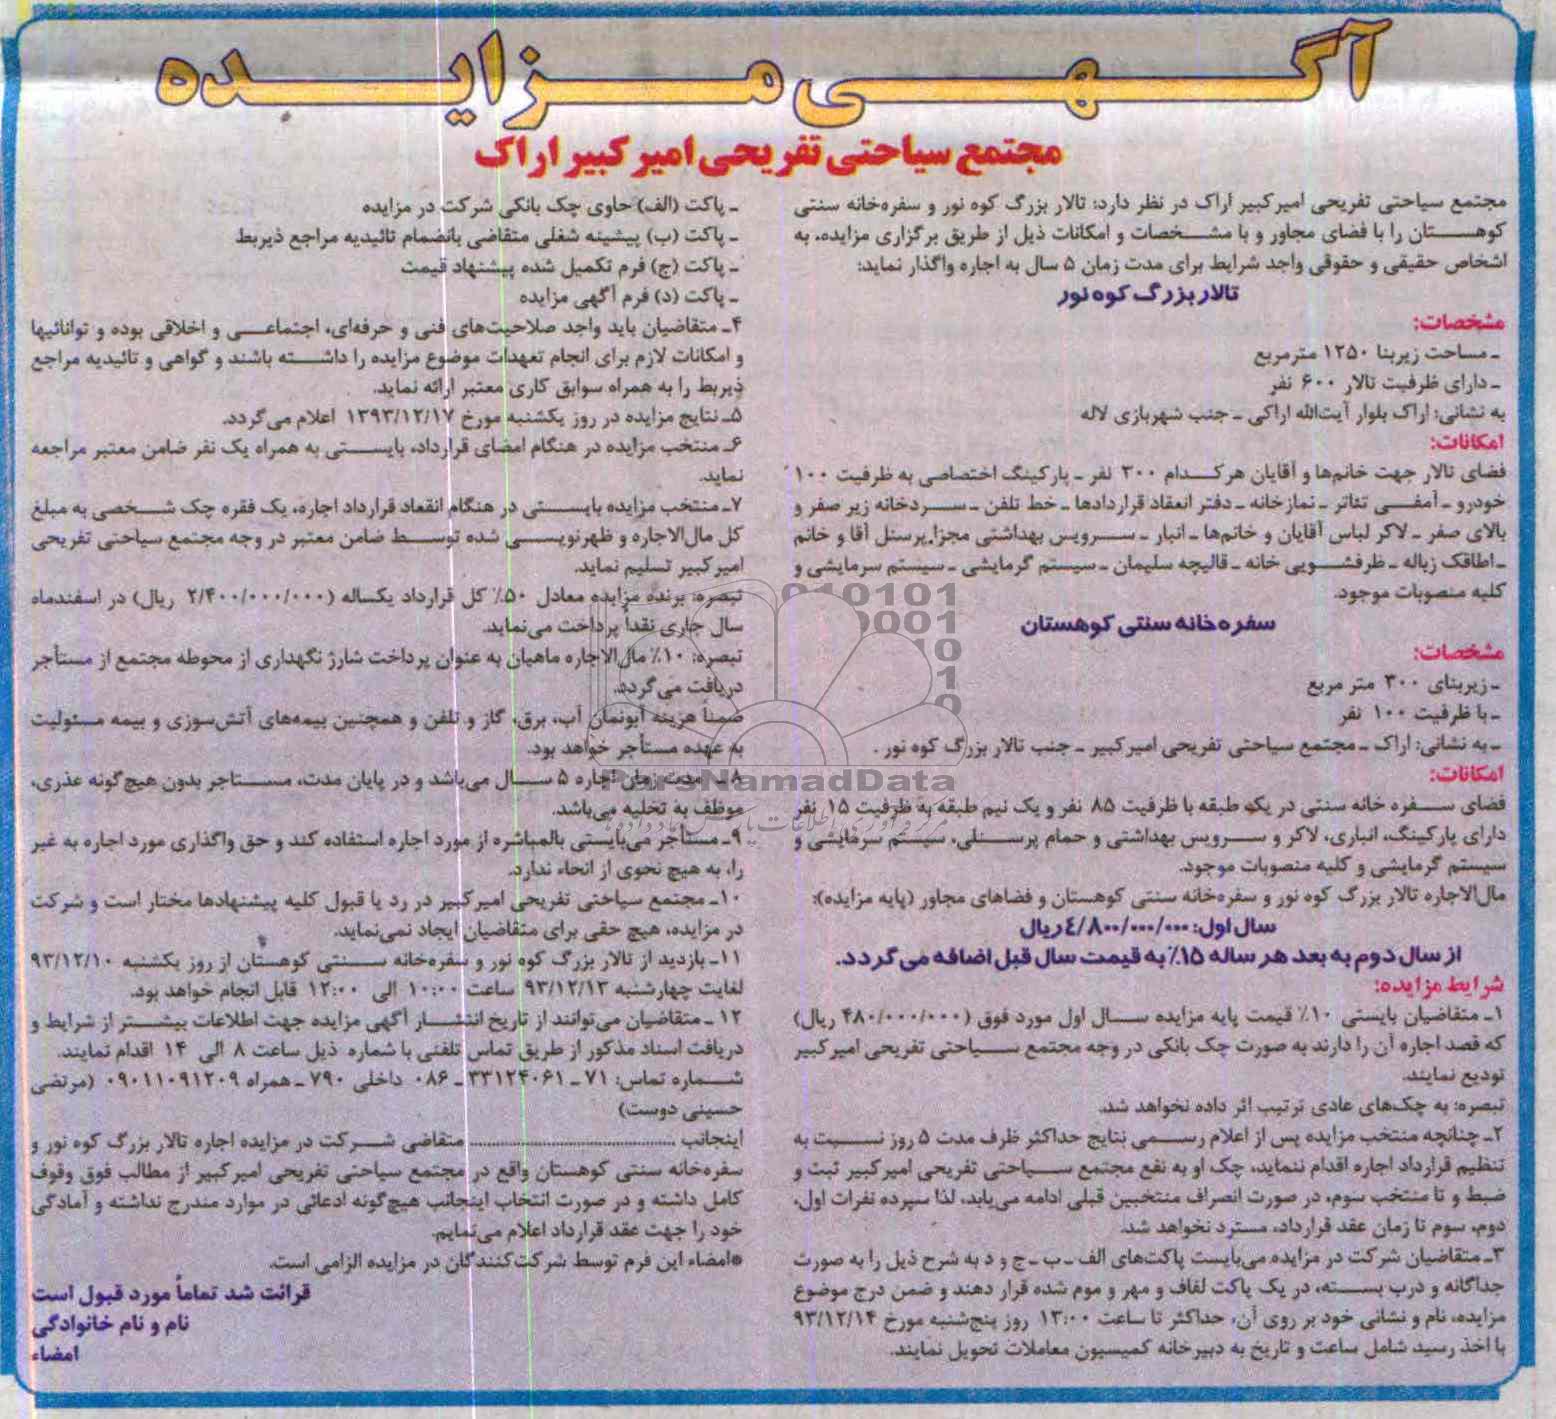 آگهی مزایده
مجتمع سیاحتی تفریحی امیرکبیر اراک
مجتمع سیاحتی تفریحی امیرکبیر اراک در نظر دارد؛ تالار بزرگ کوه نور و سفره‌خانه سنتی
کوهستان را با فضای مجاور و با مشخصات و امکانات ذیل از طریق برگزاری مزایده، به
اشخاص حقیقی و حقوقی واجد شرایط برای مدت زمان ۵ سال به اجاره واگذار نماید:
تالار بزرگ کوه نور
مشخصات:
ـ مساحت زیربنا ۱۲۵۰ مترمربع
ـ دارای ظرفیت تالار ۶۰۰ نفر
به نشانی: اراک بلوار آیت‌الله اراکی ـ جنب شهربازی لاله
امکانات:
فضای تالار جهت خانم‌ها و آقایان هرکدام ۳۰۰ نفر ـ پارکینگ اختصاصی به ظرفیت ۱۰۰
خودرو ـ آمفی تئاتر ـ نمازخانه ـ دفتر انعقاد قراردادها ـ خط تلفن ـ سردخانه زیر صفر و
بالای صفر ـ لاکر لباس آقایان و خانم‌ها ـ انبار ـ سرویس بهداشتی مجزا پرسنل آقا و خانم
ـ اطاقک زباله ـ ظرفشویی خانه ـ قالیچه سلیمان ـ سیستم گرمایشی ـ سیستم سرمایشی و
کلیه منصوبات موجود.
سفره‌خانه سنتی کوهستان
مشخصات:
ـ زیربنای ۳۰۰ متر مربع
ـ با ظرفیت ۱۰۰ نفر
ـ به نشانی: اراک ـ مجتمع سیاحتی تفریحی امیرکبیر ـ جنب تالار بزرگ کوه نور.
امکانات:
فضای سفره خانه سنتی در یک طبقه با ظرفیت ۸۵ نفر و یک نیم طبقه به ظرفیت ۱۵ نفر
دارای پارکینگ، انباری، لاکر و سرویس بهداشتی و حمام پرسنلی، سیستم سرمایشی و
سیستم گرمایشی و کلیه منصوبات موجود.
مال‌الاجاره تالار بزرگ کوه نور و سفره‌خانه سنتی کوهستان و فضاهای مجاور (پایه مزایده):
سال اول: ۴/۸۰۰/۰۰۰/۰۰۰ ریال
از سال دوم به بعد هر ساله ۱۵٪ به قیمت سال قبل اضافه می‌گردد.
شرایط مزایده:
۱ـ متقاضیان بایستی ۱۰٪ قیمت پایه مزایده سال اول مورد فوق (۴۸۰/۰۰۰/۰۰۰ ریال)
که قصد اجاره آن را دارند به صورت چک بانکی در وجه مجتمع سیاحتی تفریحی امیرکبیر
تودیع نمایند.
تبصره: به چک‌های عادی ترتیب اثر داده نخواهد شد.
۲ـ چنانچه منتخب مزایده پس از اعلام رسمی نتایج حداکثر ظرف مدت ۵ روز نسبت به
تنظیم قرارداد اجاره اقدام ننماید، چک او به نفع مجتمع سیاحتی تفریحی امیرکبیر ثبت و
ضبط و تا منتخب سوم، در صورت انصراف منتخبین قبلی ادامه می‌یابد، لذا سپرده نفرات اول،
دوم، سوم تا زمان عقد قرارداد، مسترد نخواهد شد.
۳ـ متقاضیان شرکت در مزایده می‌بایست پاکت‌های الف ـ ب ـ ج و د به شرح ذیل را به صورت
جداگانه و درب بسته، در یک پاکت لفاف و مهر و موم شده قرار دهند و ضمن درج موضوع
مزایده، نام و نشانی خود بر روی آن، حداکثر تا ساعت ۱۳:۰۰ روز پنج‌شنبه مورخ ۹۳/۱۲/۱۴
با اخذ رسید شامل ساعت و تاریخ به دبیرخانه کمیسیون معاملات تحویل نمایند.
ـ پاکت (الف) حاوی چک بانکی شرکت در مزایده
ـ پاکت (ب) پیشینه شغلی متقاضی بانضمام تائیدیه مراجع ذیربط
ـ پاکت (ج) فرم تکمیل شده پیشنهاد قیمت
ـ پاکت (د) فرم آگهی مزایده
۴ـ متقاضیان باید واجد صلاحیت‌های فنی و حرفه‌ای، اجتماعی و اخلاقی بوده و توانائیها
و امکانات لازم برای انجام تعهدات موضوع مزایده را داشته باشند و گواهی و تائیدیه مراجع
ذیربط را به همراه سوابق کاری معتبر ارائه نماید.
۵ـ نتایج مزایده در روز یکشنبه مورخ ۱۳۹۳/۱۲/۱۷ اعلام می‌گردد.
۶ـ منتخب مزایده در هنگام امضای قرارداد، بایستی به همراه یک نفر ضامن معتبر مراجعه
نماید.
۷ـ منتخب مزایده بایستی در هنگام انقعاد قرارداد اجاره، یک فقره چک شخصی به مبلغ
کل مال‌الاجاره و ظهرنویسی شده توسط ضامن معتبر در وجه مجتمع سیاحتی تفریحی
امیرکبیر تسلیم نماید.
تبصره: برنده مزایده معادل ۵۰٪ کل قرارداد یکساله (۲/۴۰۰/۰۰۰/۰۰۰ ریال) در اسفندماه
سال جاری نقداً پرداخت می‌نماید.
تبصره: ۱۰٪ مال‌الاجاره ماهیان به عنوان پرداخت شارژ نگهداری از محوطه مجتمع از مستأجر
دریافت می‌گردد.
ضمناً هزینه آبونمان آب، برق، گاز و تلفن و همچنین بیمه‌های آتش‌سوزی و بیمه مسئولیت
به عهده مستأجر خواهد بود.
۸ـ مدت زمان اجاره ۵ سال می‌باشد و در پایان مدت، مستاجر بدون هیچ‌گونه عذری،
موظف به تخلیه می‌باشد.
۹ـ مستأجر می‌بایستی بالمباشره از مورد اجاره استفاده کند و حق واگذاری مورد اجاره به غیر
را، به هیچ نحوی از انحاء ندارد.
۱۰ـ مجتمع سیاحتی تفریحی امیرکبیر در رد یا قبول کلیه پیشنهادها مختار است و شرکت
در مزایده، هیچ حقی برای متقاضیان ایجاد نمی‌نماید.
۱۱ـ بازدید از تالار بزرگ کوه نور و سفره‌خانه سنتی کوهستان از روز یکشنبه ۹۳/۱۲/۱۰
لغایت چهارشنبه ۹۳/۱۲/۱۳ ساعت ۱۰:۰۰ الی ۱۲:۰۰ قابل انجام خواهد بود.
۱۲ـ متقاضیان می‌توانند از تاریخ انتشار آگهی مزایده جهت اطلاعات بیشتر از شرایط و
دریافت اسناد مذکور از طریق تماس تلفنی با شماره ذیل ساعت ۸ الی ۱۴ اقدام نمایند.
شماره تماس: ۷۱ ـ ۳۳۱۲۴۰۶۱ ـ ۰۸۶ داخلی ۷۹۰ ـ همراه ۰۹۰۱۱۰۹۱۲۰۹ (مرتضی
حسینی دوست)
اینجانب ................................ متقاضی شرکت در مزایده اجاره تالار بزرگ کوه نور و
سفره‌خانه سنتی کوهستان واقع در مجتمع سیاحتی تفریحی امیرکبیر از مطالب فوق وقوف
کامل داشته و در صورت انتخاب اینجانب هیچ‌گونه ادعائی در موارد مندرج نداشته و آمادگی
خود را جهت عقد قرارداد اعلام می‌نمایم.
*امضاء این فرم توسط شرکت‌کنندگان در مزایده الزامی است.
قرائت شد تماماً مورد قبول است
نام و نام خانوادگی
امضاء
ParsNamadData